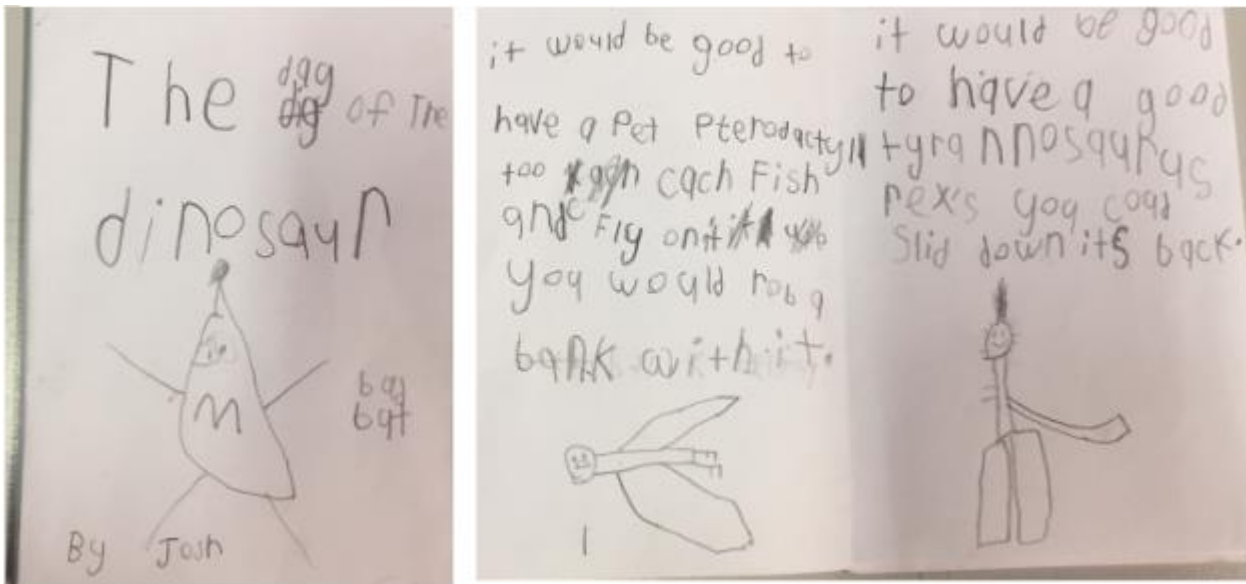 The day of The
dinosaur
bat
By Josh
it would be good to
have a Pet Pterodactyll
too cach Fish
and Fly on it
you would rob a
bank with it.
1
it would be good
to have a good
tyrannosaurus
rex's you coud
Slid down its back.